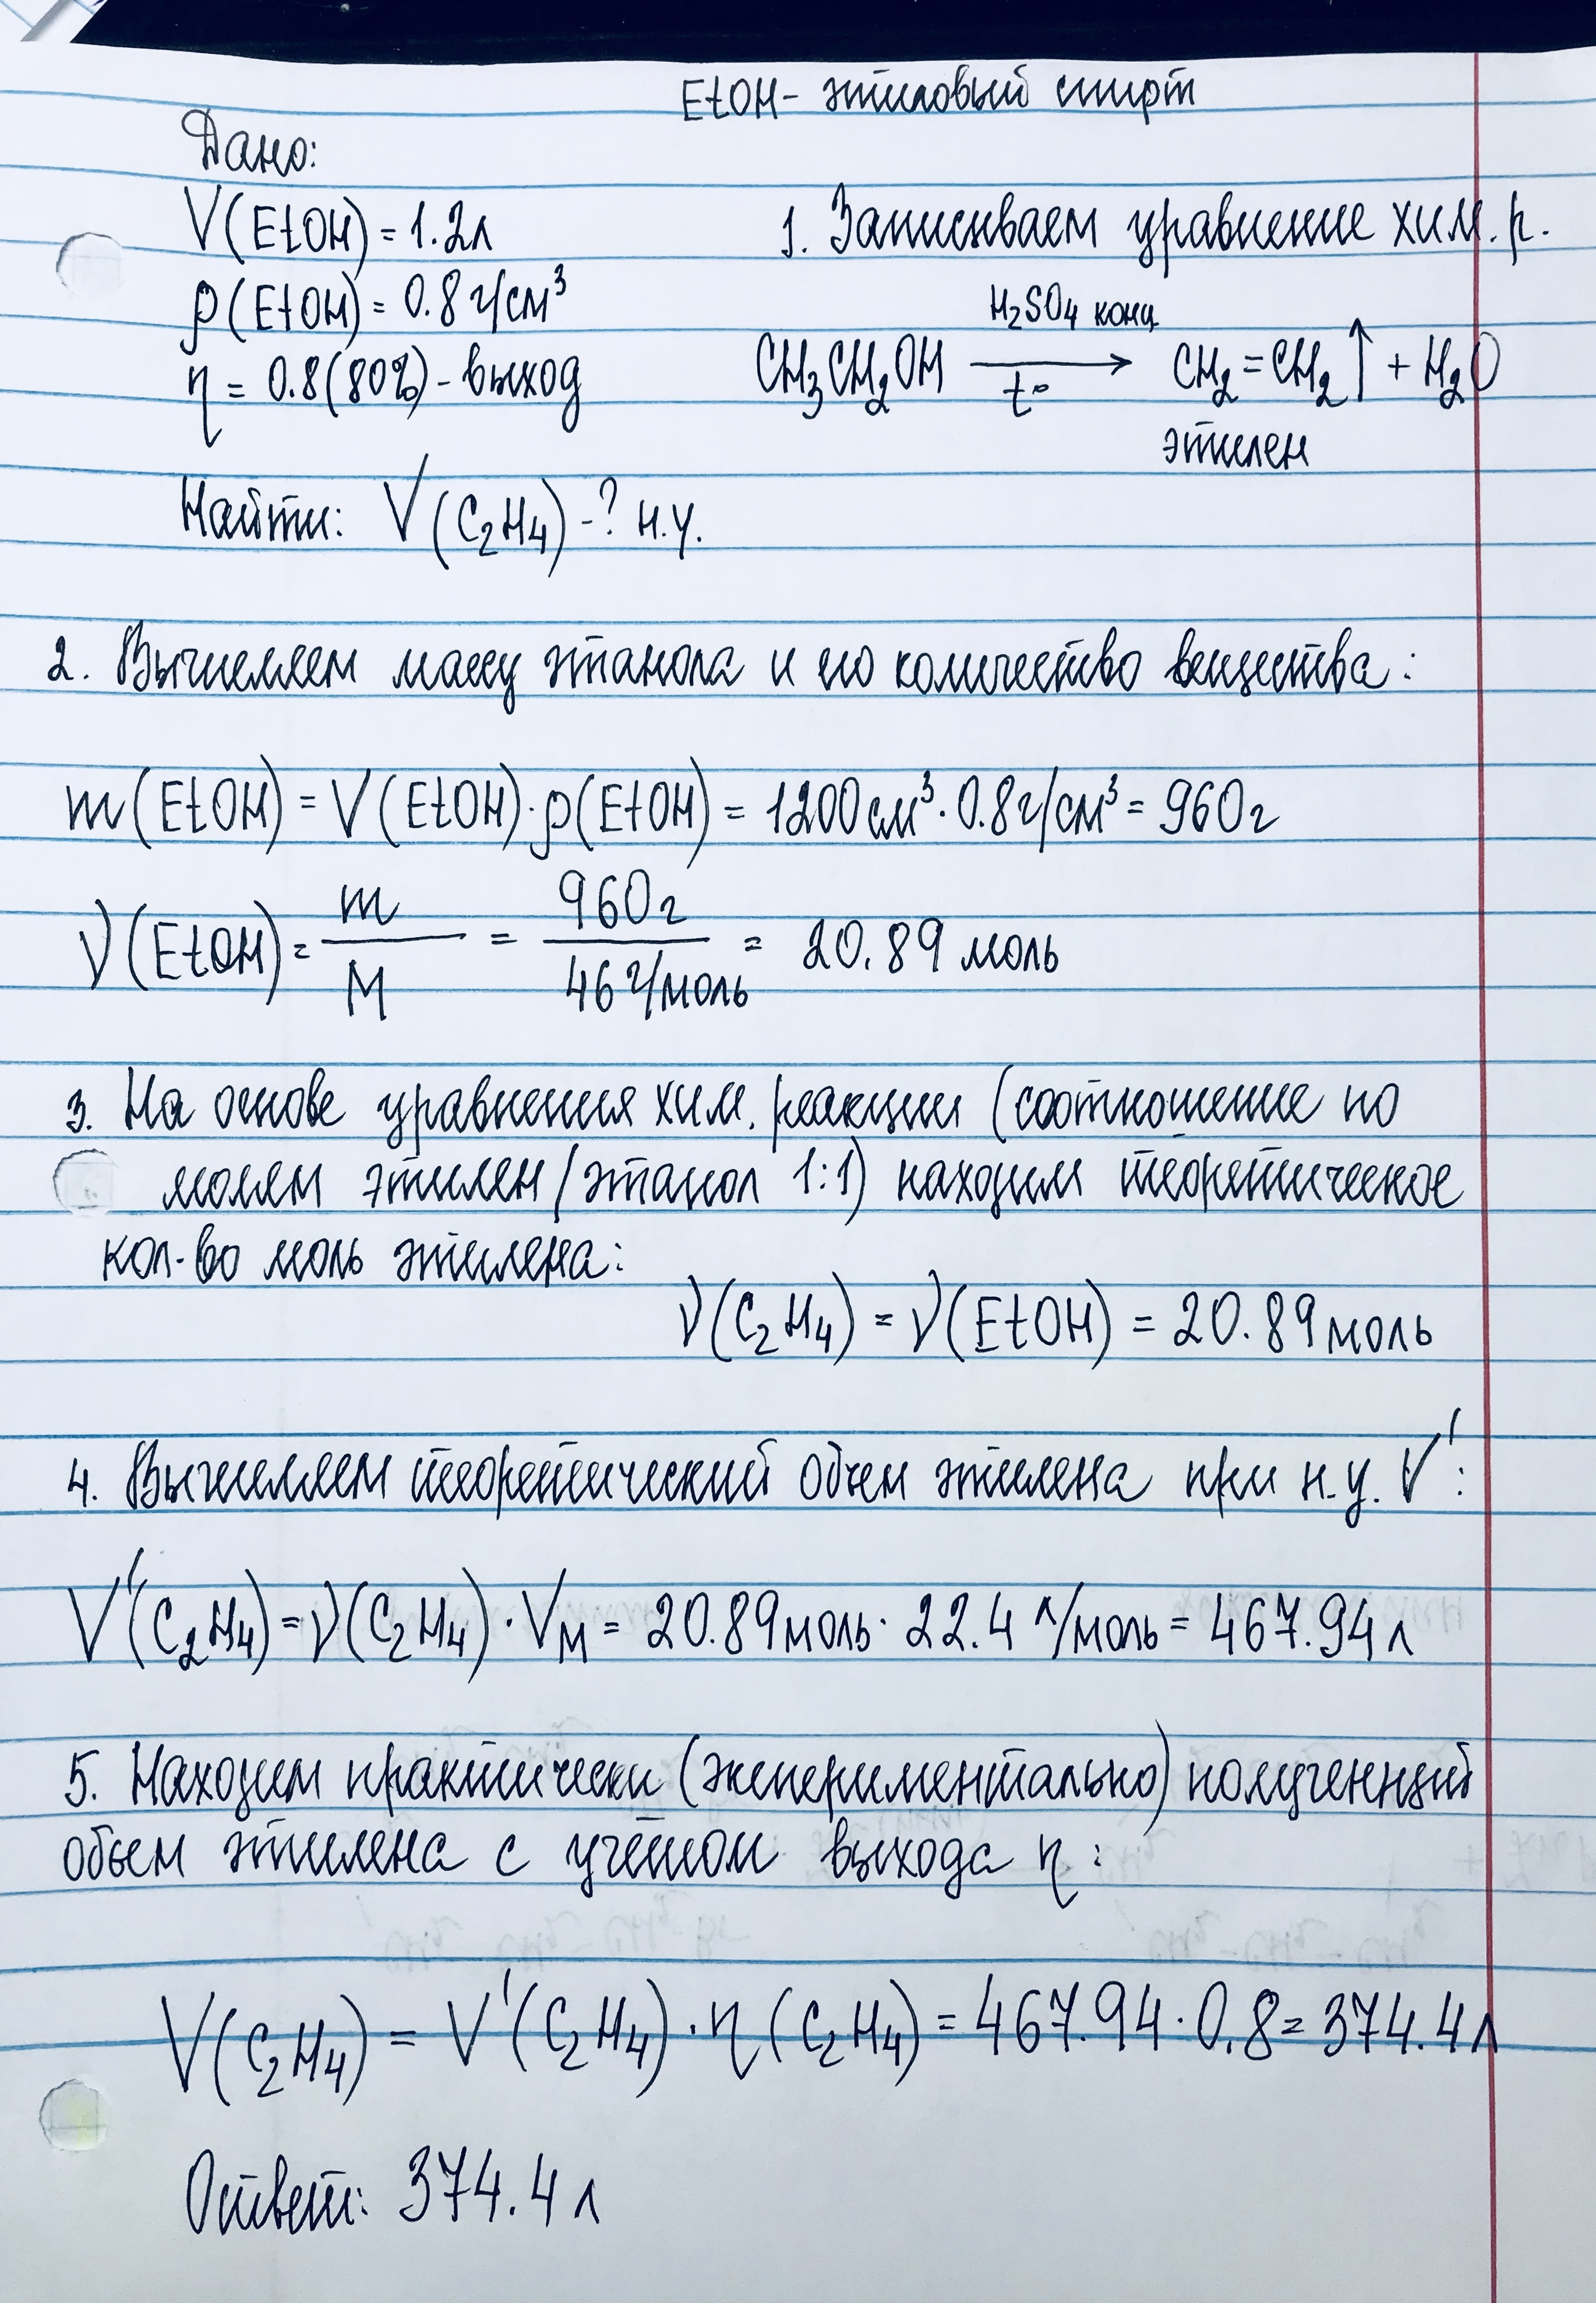 EtOH - этиловый спирт
Дано:
V(EtOH) = 1.2л
1. Записываем уравнение хим. р.
ρ(EtOH) = 0.8 г/см³
H₂SO₄ конц
CH₃CH₂OH ⟶ CH₂=CH₂↑ + H₂O
t°
η = 0.8(80%) - выход
этилен
Найти: V(C₂H₄) - ? н.у.
2. Вычисляем массу этанола и его количество вещества:
m(EtOH) = V(EtOH)·ρ(EtOH) = 1200см³·0.8г/см³ = 960г
ν(EtOH) = m/M = 960г/46г/моль = 20.89 моль
3. На основе уравнения хим. реакции (соотношение по
молям этилен/этанол 1:1) находим теоретическое
кол-во моль этилена:
ν(C₂H₄) = ν(EtOH) = 20.89моль
4. Вычисляем теоретический объем этилена при н.у. V':
V'(C₂H₄) = ν(C₂H₄)·Vм = 20.89моль·22.4 л/моль = 467.94л
5. Находим практически (экспериментально) полученный
объем этилена с учётом выхода η:
V(C₂H₄) = V'(C₂H₄)·η(C₂H₄) = 467.94·0.8 = 374.4л
Ответ: 374.4л